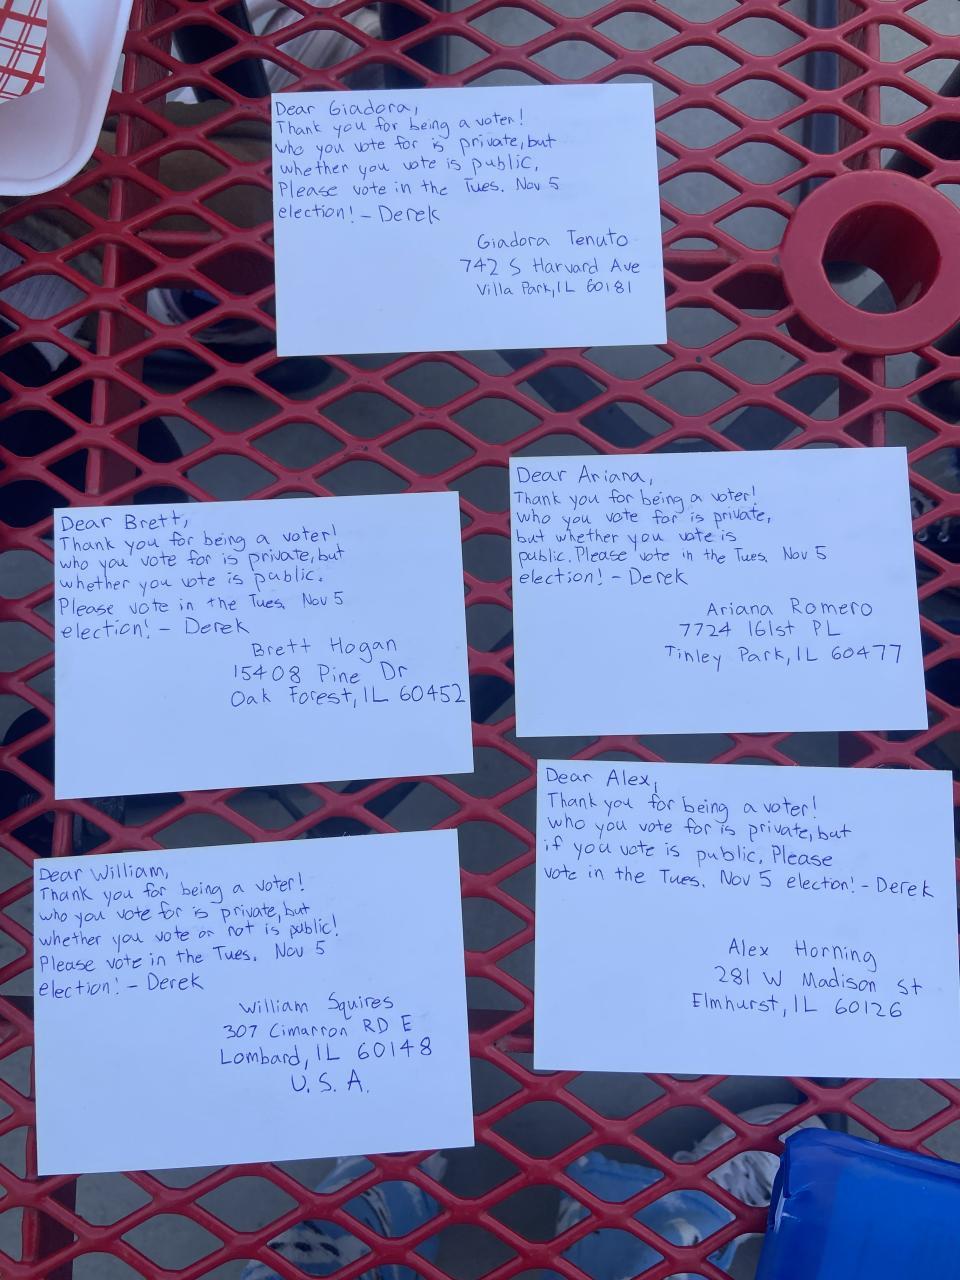 Dear Giadora,
Thank you for being a voter!
who you vote for is private, but
whether you vote is public.
Please vote in the Tues. Nov 5
election! - Derek
Giadora Tenuto
742 S Harvard Ave
Villa Park, IL 60181
Dear Brett,
Thank you for being a voter!
who you vote for is private, but
whether you vote is public.
Please vote in the Tues. Nov 5
election! - Derek
Brett Hogan
15408 Pine Dr
Oak Forest, IL 60452
Dear Ariana,
Thank you for being a voter!
who you vote for is private,
but whether you vote is
public. Please vote in the Tues. Nov 5
election! - Derek
Ariana Romero
7724 161st PL
Tinley Park, IL 60477
Dear William,
Thank you for being a voter!
who you vote for is private, but
whether you vote or not is public!
Please vote in the Tues. Nov 5
election! - Derek
William Squires
307 Cimarron RD E
Lombard, IL 60148
U. S. A.
Dear Alex,
Thank you for being a voter!
who you vote for is private, but
if you vote is public. Please
vote in the Tues. Nov 5 election! - Derek
Alex Horning
281 W Madison St
Elmhurst, IL 60126